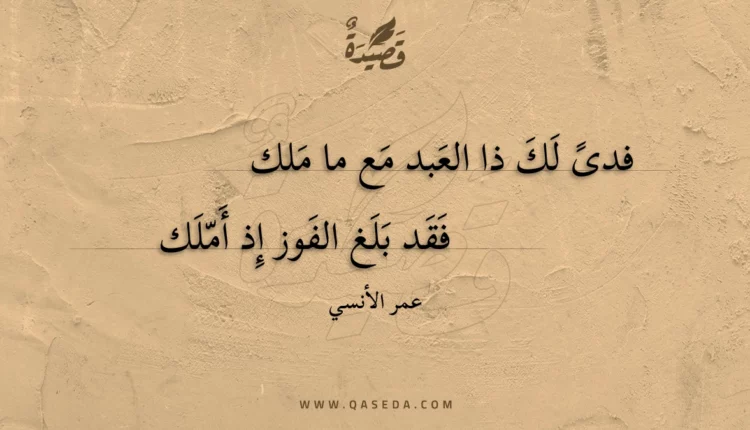 قَصِيْدَةٌ
فدىً لَكَ ذا العَبد مَع ما مَلك
فَقَد بَلَغ الفَوز إِذ أَمّلَك
عمر الأنسي
WWW.QASEDA.COM